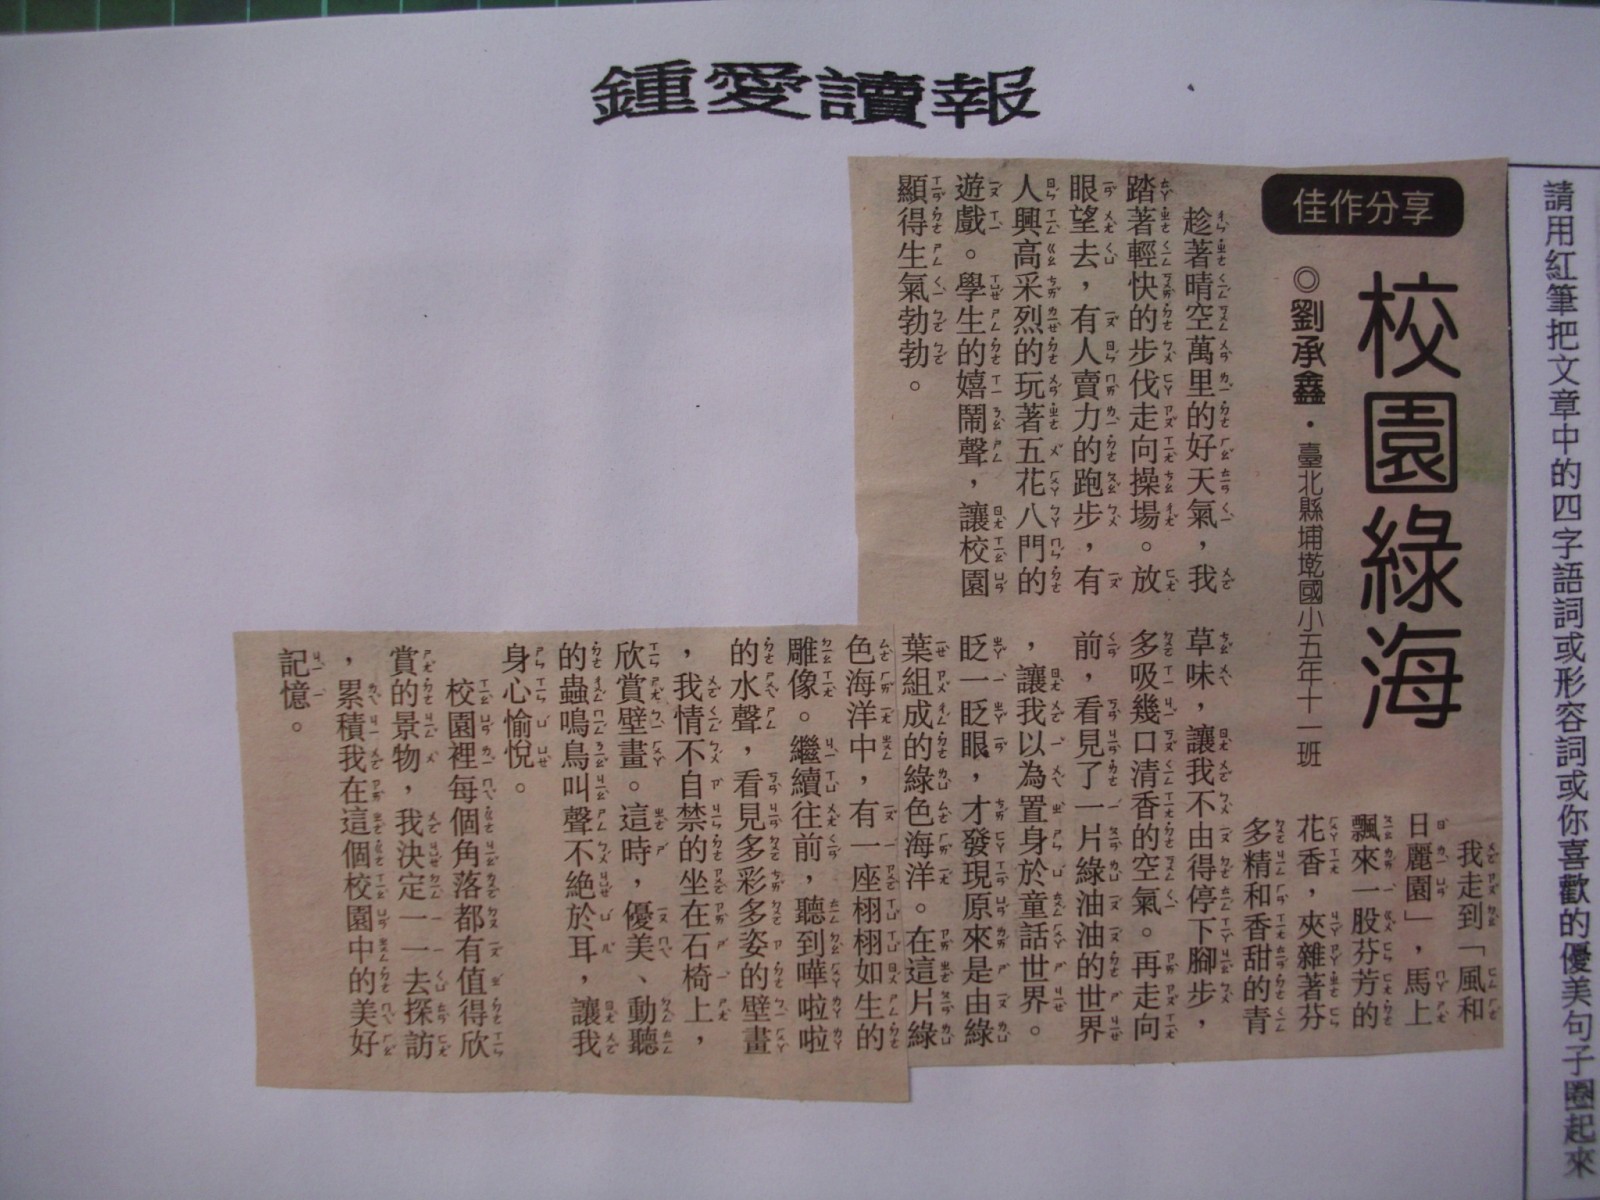 鍾愛讀報
請用紅筆把文章中的四字語詞或形容詞或你喜歡的優美句子圈起來
佳作分享
校園綠海
◎劉承鑫・臺北縣埔墘國小五年十一班
趁著晴空萬里的好天氣，我
踏著輕快的步伐走向操場。放
眼望去，有人賣力的跑步，有
人興高采烈的玩著五花八門的
遊戲。學生的嬉鬧聲，讓校園
顯得生氣勃勃。
我走到「風和
日麗園」，馬上
飄來一股芬芳的
花香，夾雜著芬
多精和香甜的青
草味，讓我不由得停下腳步，
多吸幾口清香的空氣。再走向
前，看見了一片綠油油的世界
，讓我以為置身於童話世界。
眨一眨眼，才發現原來是由綠
葉組成的綠色海洋。在這片綠
色海洋中，有一座栩栩如生的
雕像。繼續往前，聽到嘩啦啦
的水聲，看見多彩多姿的壁畫
，我情不自禁的坐在石椅上，
欣賞壁畫。這時，優美、動聽
的蟲鳴鳥叫聲不絕於耳，讓我
身心愉悅。
校園裡每個角落都有值得欣
賞的景物，我決定一一去探訪
，累積我在這個校園中的美好
記憶。